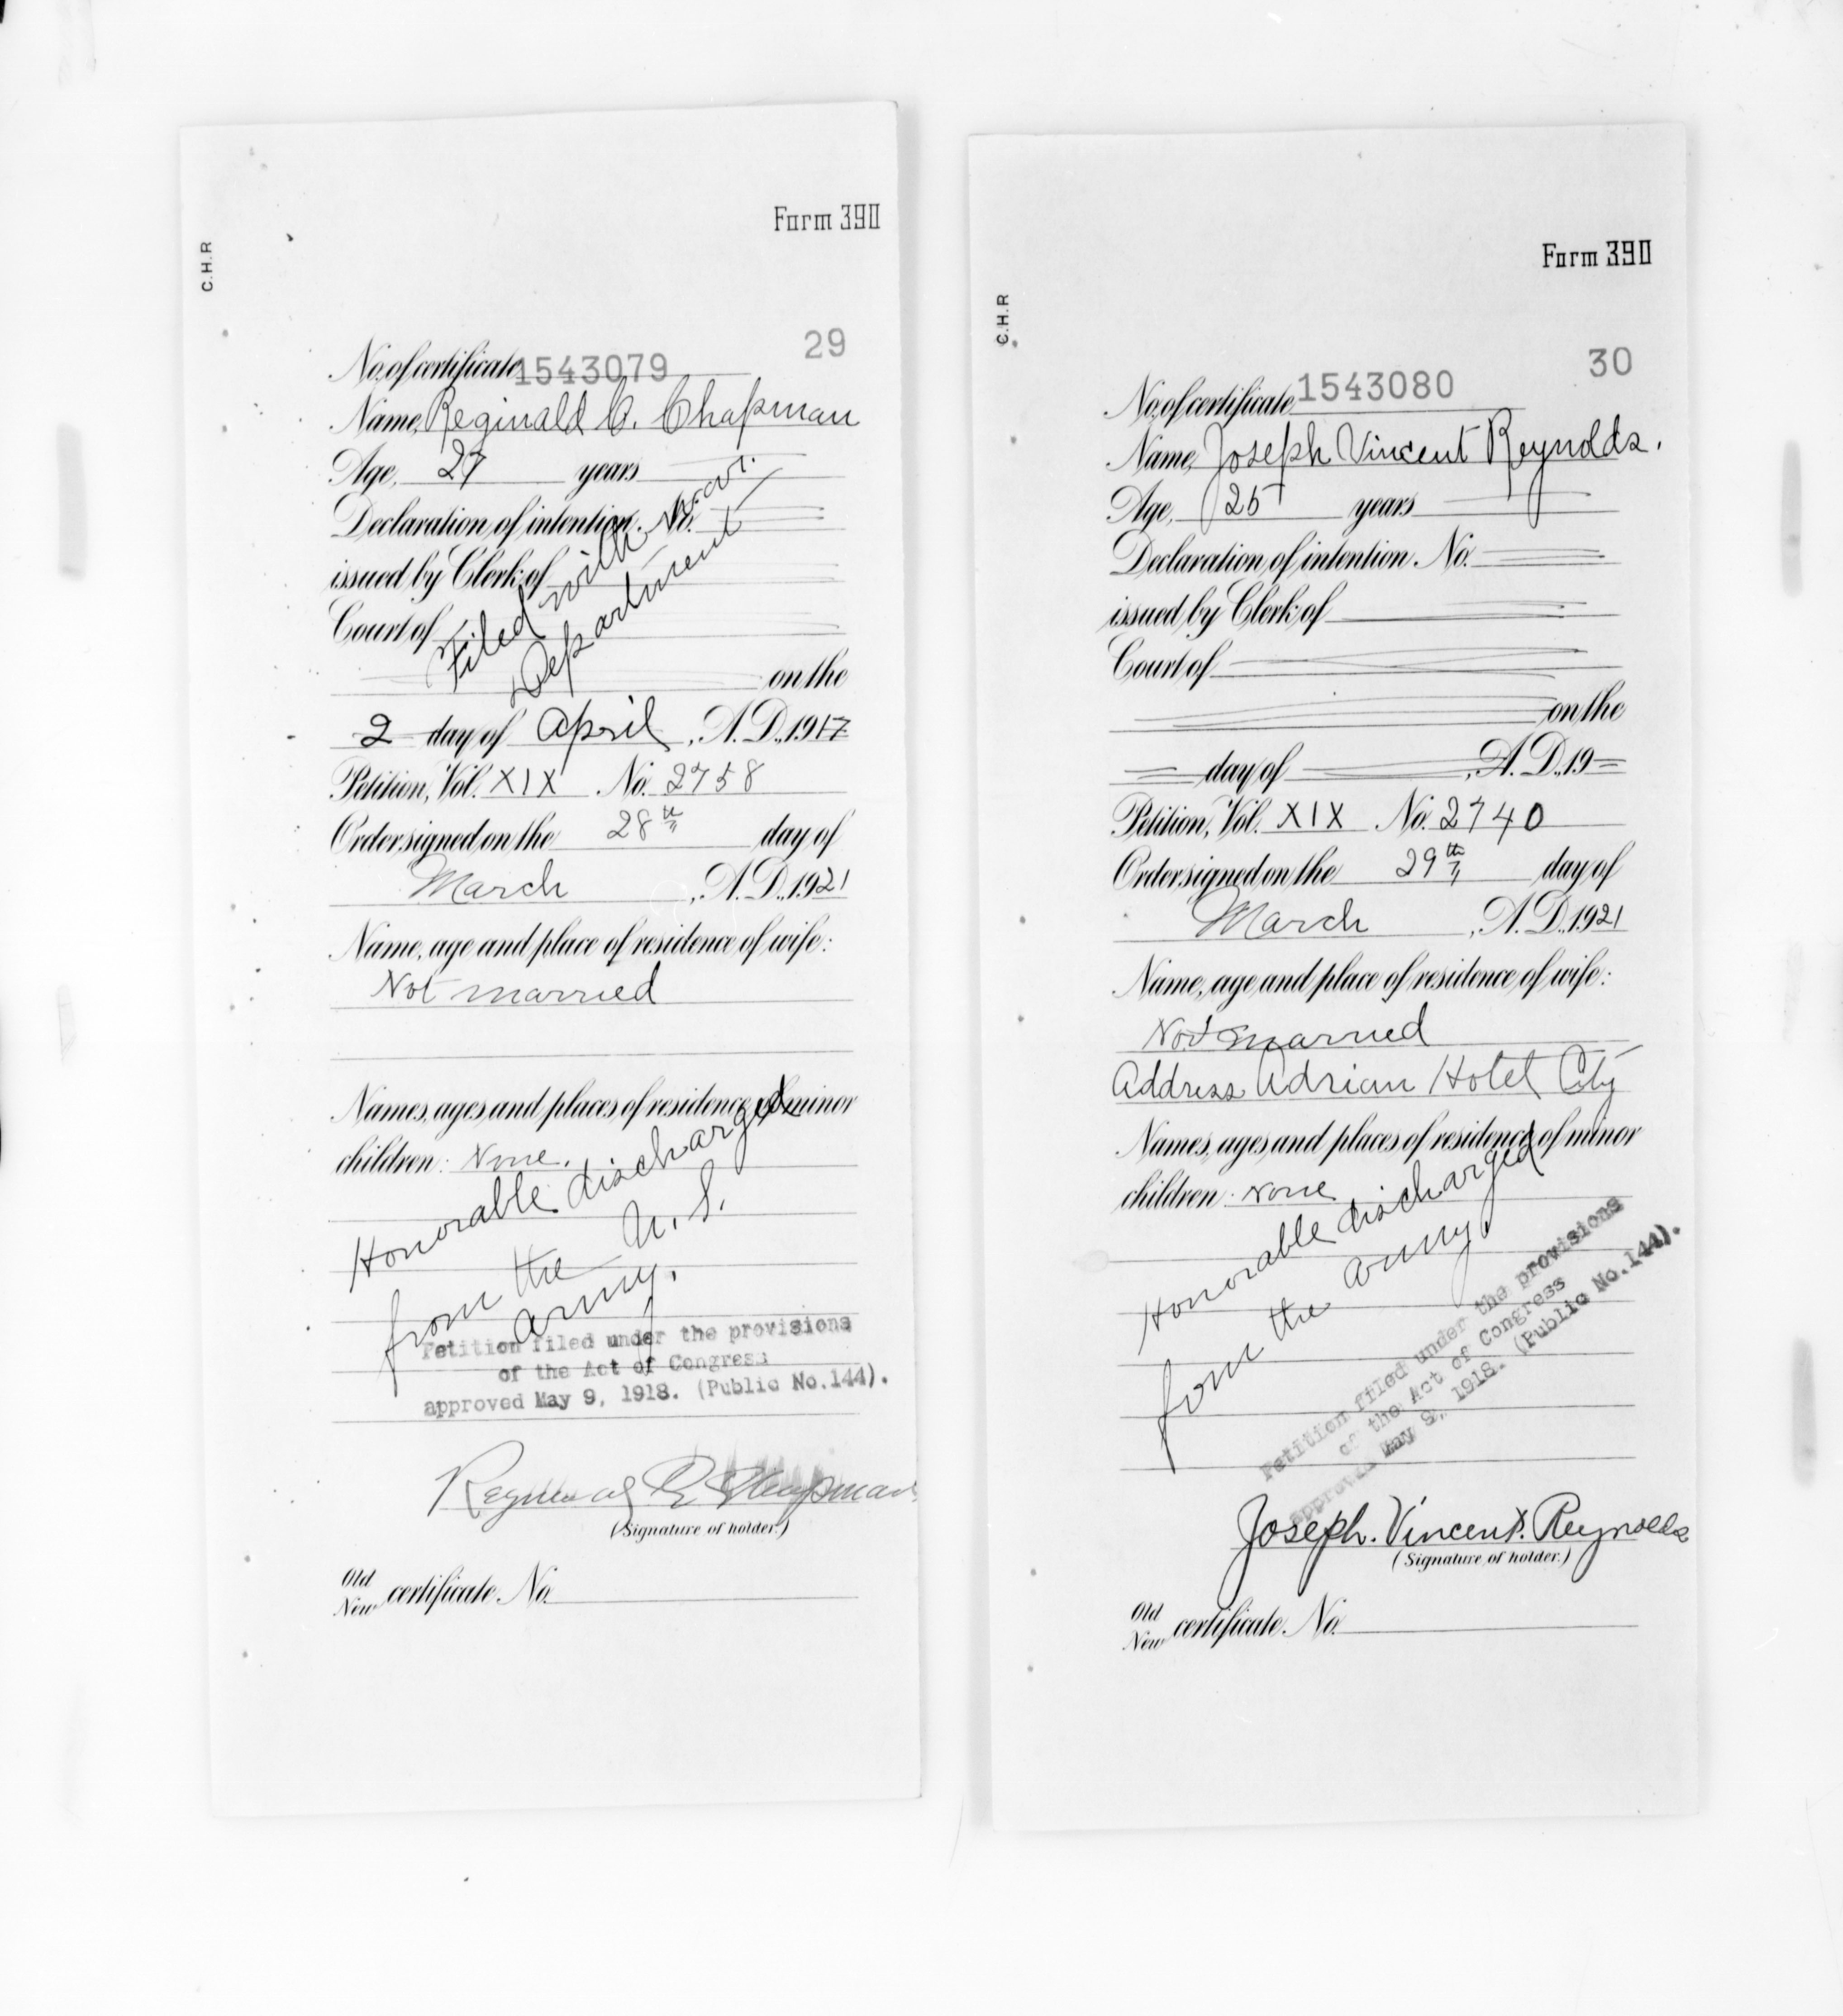 Form 390
C.H.R
29
No. of certificate 1543079
Name, Reginald C. Chapman
Age, 27 years
Declaration of intention. No.
issued by Clerk of
Court of
Filed with Navy.
Department
on the
2 day of April, A. D., 1917
Petition, Vol. XIX No. 2758
Order signed on the 28th day of
March, A. D., 1921
Name, age and place of residence of wife:
Not married
Names, ages and places of residence of minor
children: None.
Honorable discharged
from the U. S.
Army.
Petition filed under the provisions
of the Act of Congress
approved May 9, 1918. (Public No.144).
Chapman
(Signature of holder.)
Old
New certificate. No.
Form 390
C.H.R
30
No. of certificate 1543080
Name, Joseph Vincent Reynolds.
Age, 25 years
Declaration of intention. No.
issued by Clerk of
Court of
on the
day of , A. D., 19
Petition, Vol. XIX No. 2740
Order signed on the 29th day of
March, A. D., 1921
Name, age and place of residence of wife:
Not married
Address Adrian Hotel City
Names, ages and places of residence of minor
children: None
Honorable discharged
from the army
Petition filed under the provisions
of the Act of Congress
approved May 9, 1918. (Public No.144).
Joseph. Vincent. Reynolds
(Signature of holder.)
Old
New certificate. No.